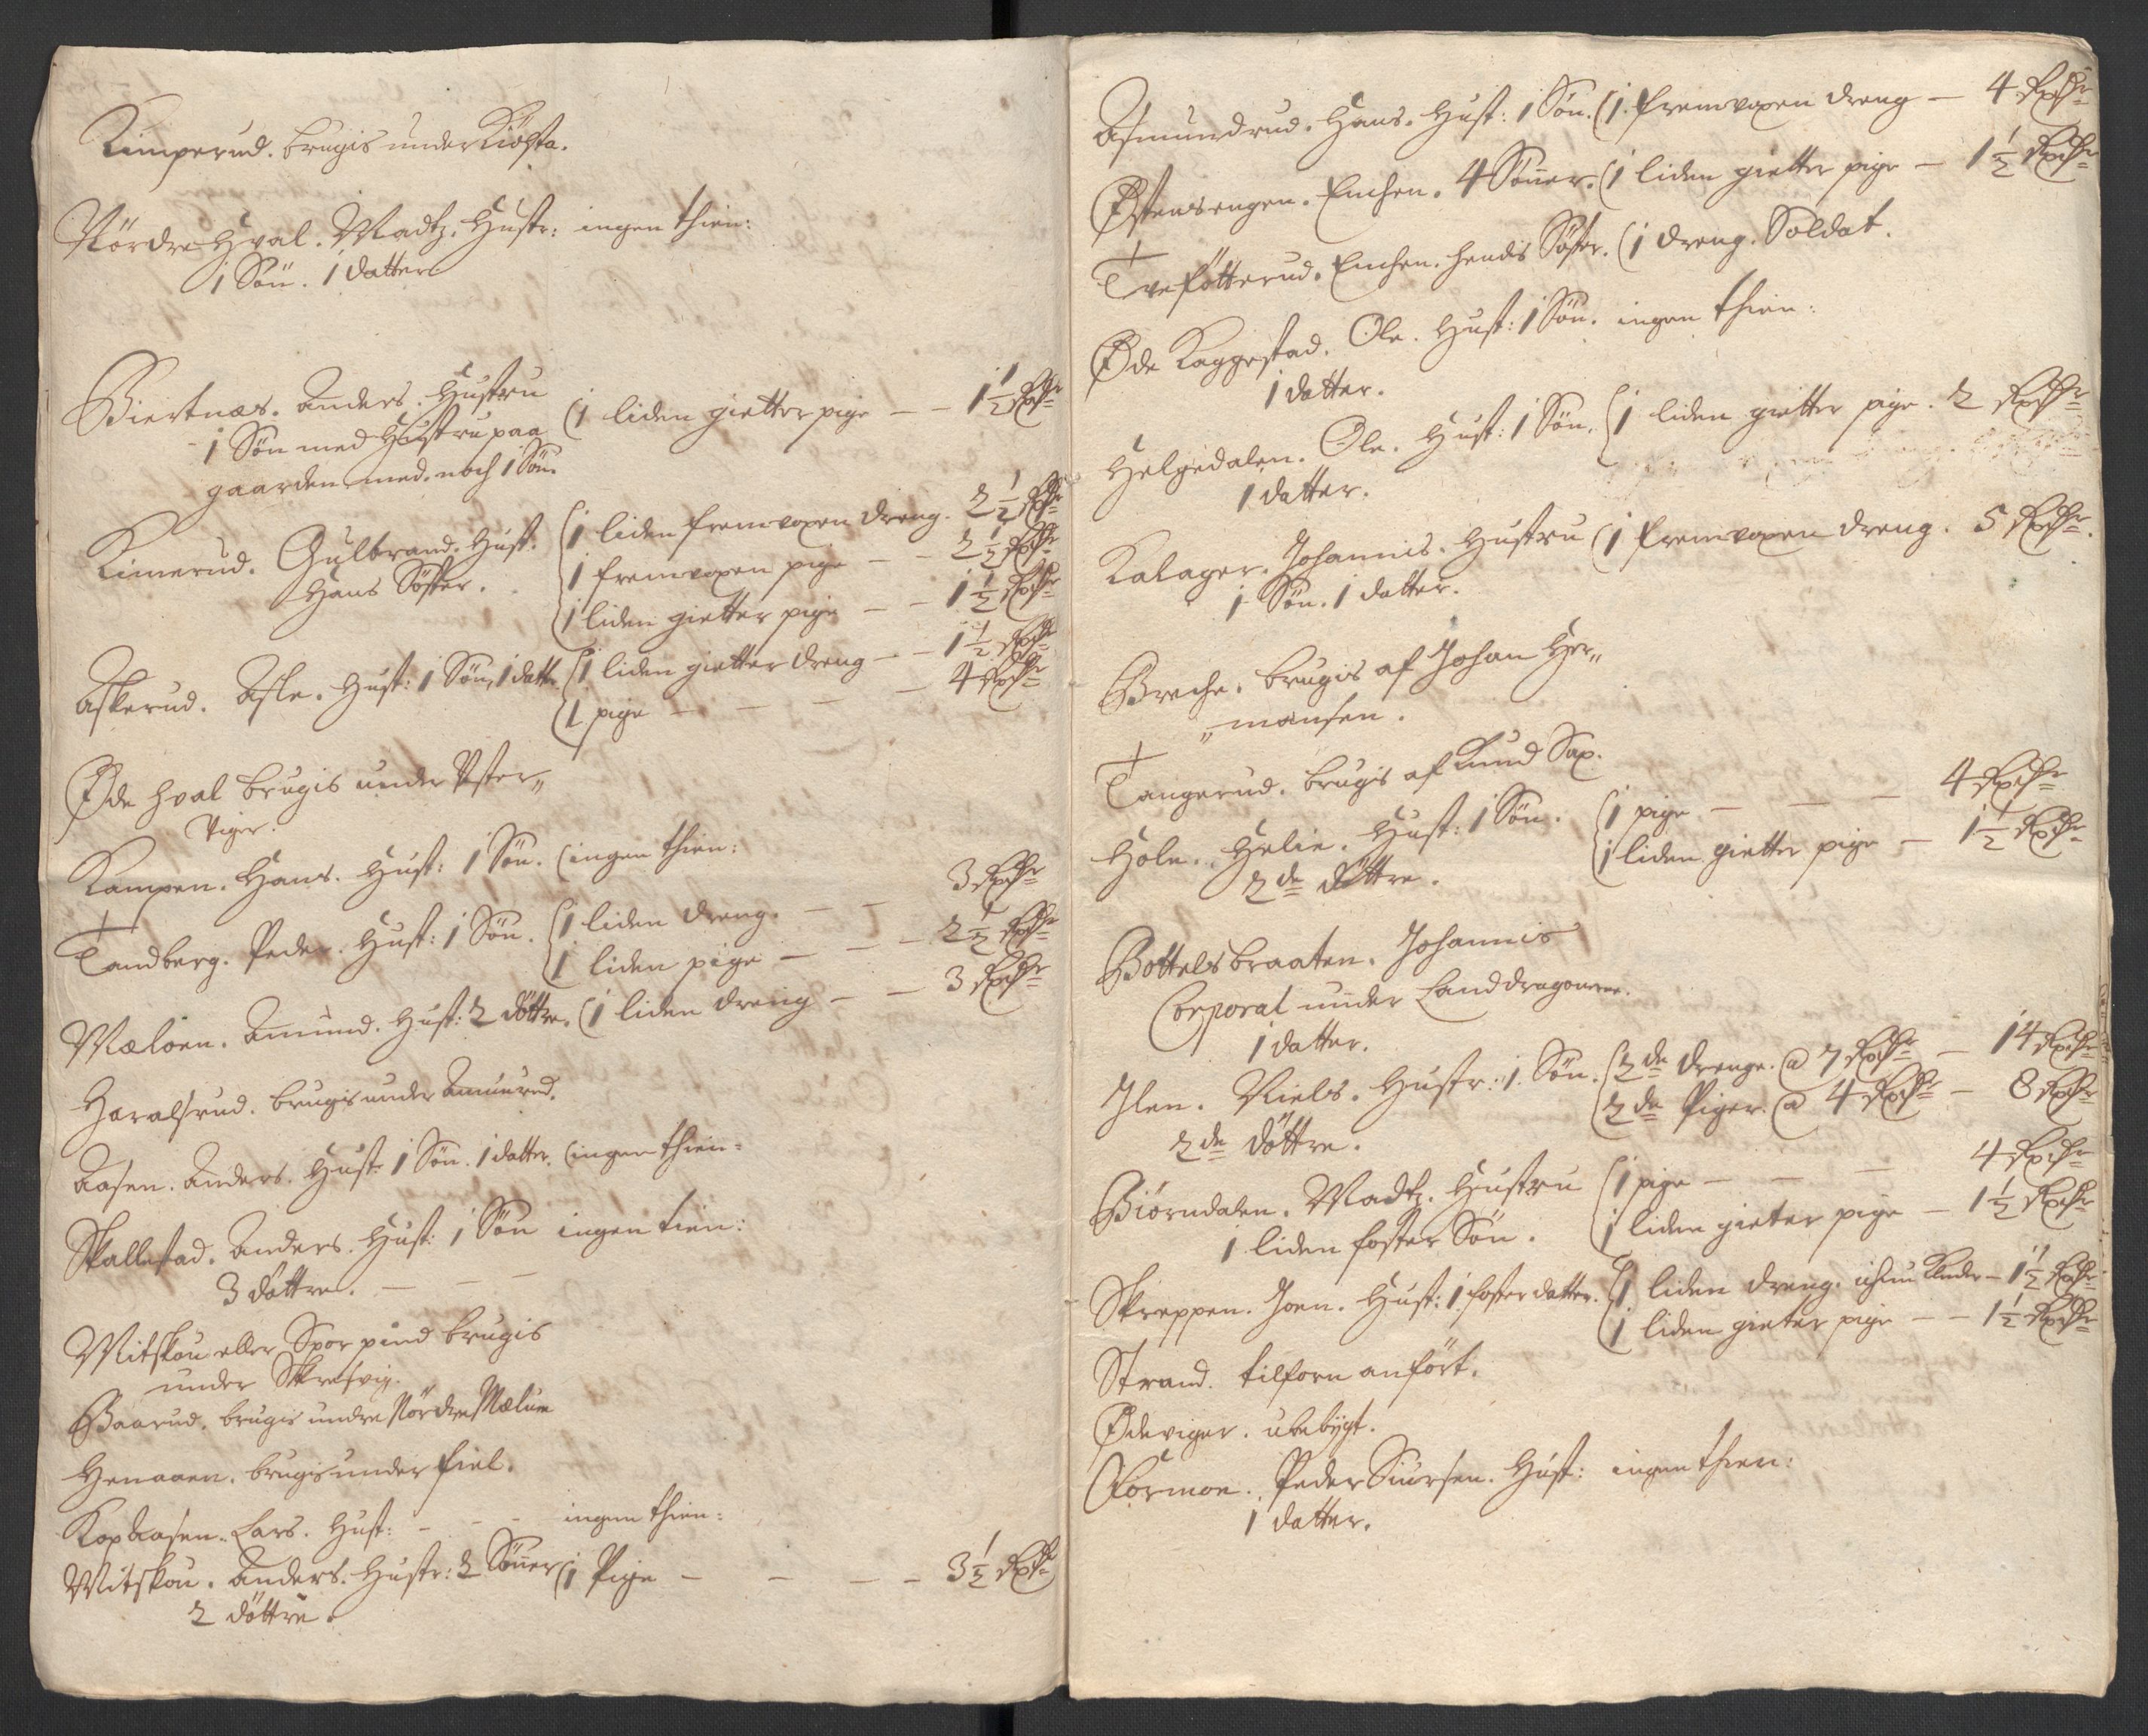 Kimperud. brugis under Kiøsta.
Nördre Hval. Madtz. Hustr: ingen thien:
1 Sön. 1 datter
Biertnæs. Anders. Hustru
1 Sön med Hustru paa (1 liden gietter pige — — 1 1/2 Rixdr
gaarden med noch 1 Sön.
Kimerud. Gulbrand. Hust. (1 liden fremvoxen dreng. 2 1/2 Rixdr
Hans Söster. 1 fremvoxen pige — — 2 1/2 Rixdr
1 liden gietter pige — — 1 1/2 Rixdr
Askerud. Asle. Hust: 1 Sön, 1 datter (1 liden gietter dreng — — 1 1/2 Rixdr
(1 pige — — — — 4 Rixdr
Øde hval brugis under Øster„
Viger.
Kampen. Hans. Hust: 1 Sön. (ingen thien:
Tandberg. Peder. Hust: 1 Sön. (1 liden dreng. — — 3 Rixdr
(1 liden pige — — — 2 1/2 Rixdr
Mæloen. Amund. Hust: 2 döttre. (1 liden dreng — — 3 Rixdr
Haralsrud. brugis under Amunrud.
Aasen. Anders. Hust: 1 Sön. 1 datter. (ingen thien:
Skallestad. Anders. Hust: 1 Sön ingen tien:
3 döttre. — — —
Mitskou eller Spor pund brugis
under Skresvig.
Baarud. brugis undre Nördre Mælum
Henaaen. brugis under fiel.
Kopaasen. Lars. Hust: - - - ingen thien:
Mitskou. Anders. Hustr: 2 Sönner (1 Pige — — — — 3 1/2 Rixdr
2 döttre.
Asmundrud. Hans. Hust: 1 Sön. (1 fremvoxen dreng — 4 Rixdr
Østensengen. Enchen. 4 Sönner. (1 liden gietter pige — 1 1/2 Rixdr
Tveføtterud. Enchen. hendis Söster. (1 dreng. Soldat.
Øde Kaggestad. Ole. Hust: 1 Sön. ingen thien:
1 datter.
Helgedalen. Ole. Hust: 1 Sön. (1 liden gietter pige. 2 Rixdr
1 datter.
Kalager. Johannis. Hustru (1 fremvoxen dreng. 5 Rixdr.
1 Sön. 1 datter.
Breche. brugis af Johan Her„
„mansen.
Tangerud. brugis af Knud Sax.
Hole. Helie. Hust: 1 Sön. (1 pige — — — 4 Rixdr
2de döttre. (1 liden gietter pige — 1 1/2 Rixdr
Bottelsbraaten. Johannis
Corporal under Landdragonerne.
1 datter.
Ilen. Niels. Hustr: 1. Sön. (2de drenge. @ 7 Rixdr — 14 Rixdr
2de döttre. (2de Piger. @ 4 Rixdr — 8 Rixdr
Biørndalen. Madtz. Hustru (1 pige — — — 4 Rixdr
1 liden foster Sön. (1 liden gieter pige — 1 1/2 Rixdr
Skreppen. Joen. Hust: 1 foster datter. (1 liden dreng. — 1 1/2 Rixdr
(1 liden gieter pige — — 1 1/2 Rixdr
Strand. tilforn anfört.
Ødeviger. ubebygt.
Formoe. Peder Siursen. Hust: ingen thien:
1 datter.